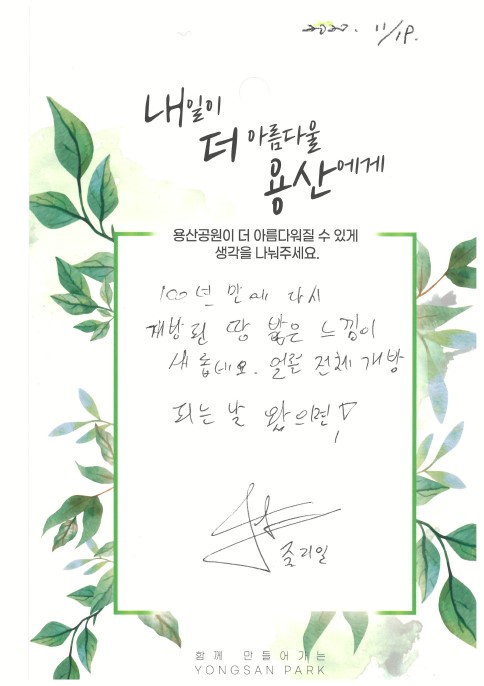 2020. 11/19.
내일이
더 아름다울
용산에게
용산공원이 더 아름다워질 수 있게
생각을 나눠주세요.
100년 만에 다시
개방된 땅 밟은 느낌이
새롭네요. 얼른 전체 개방
되는 날 왔으면!
함께 만들어가는
YONGSAN PARK